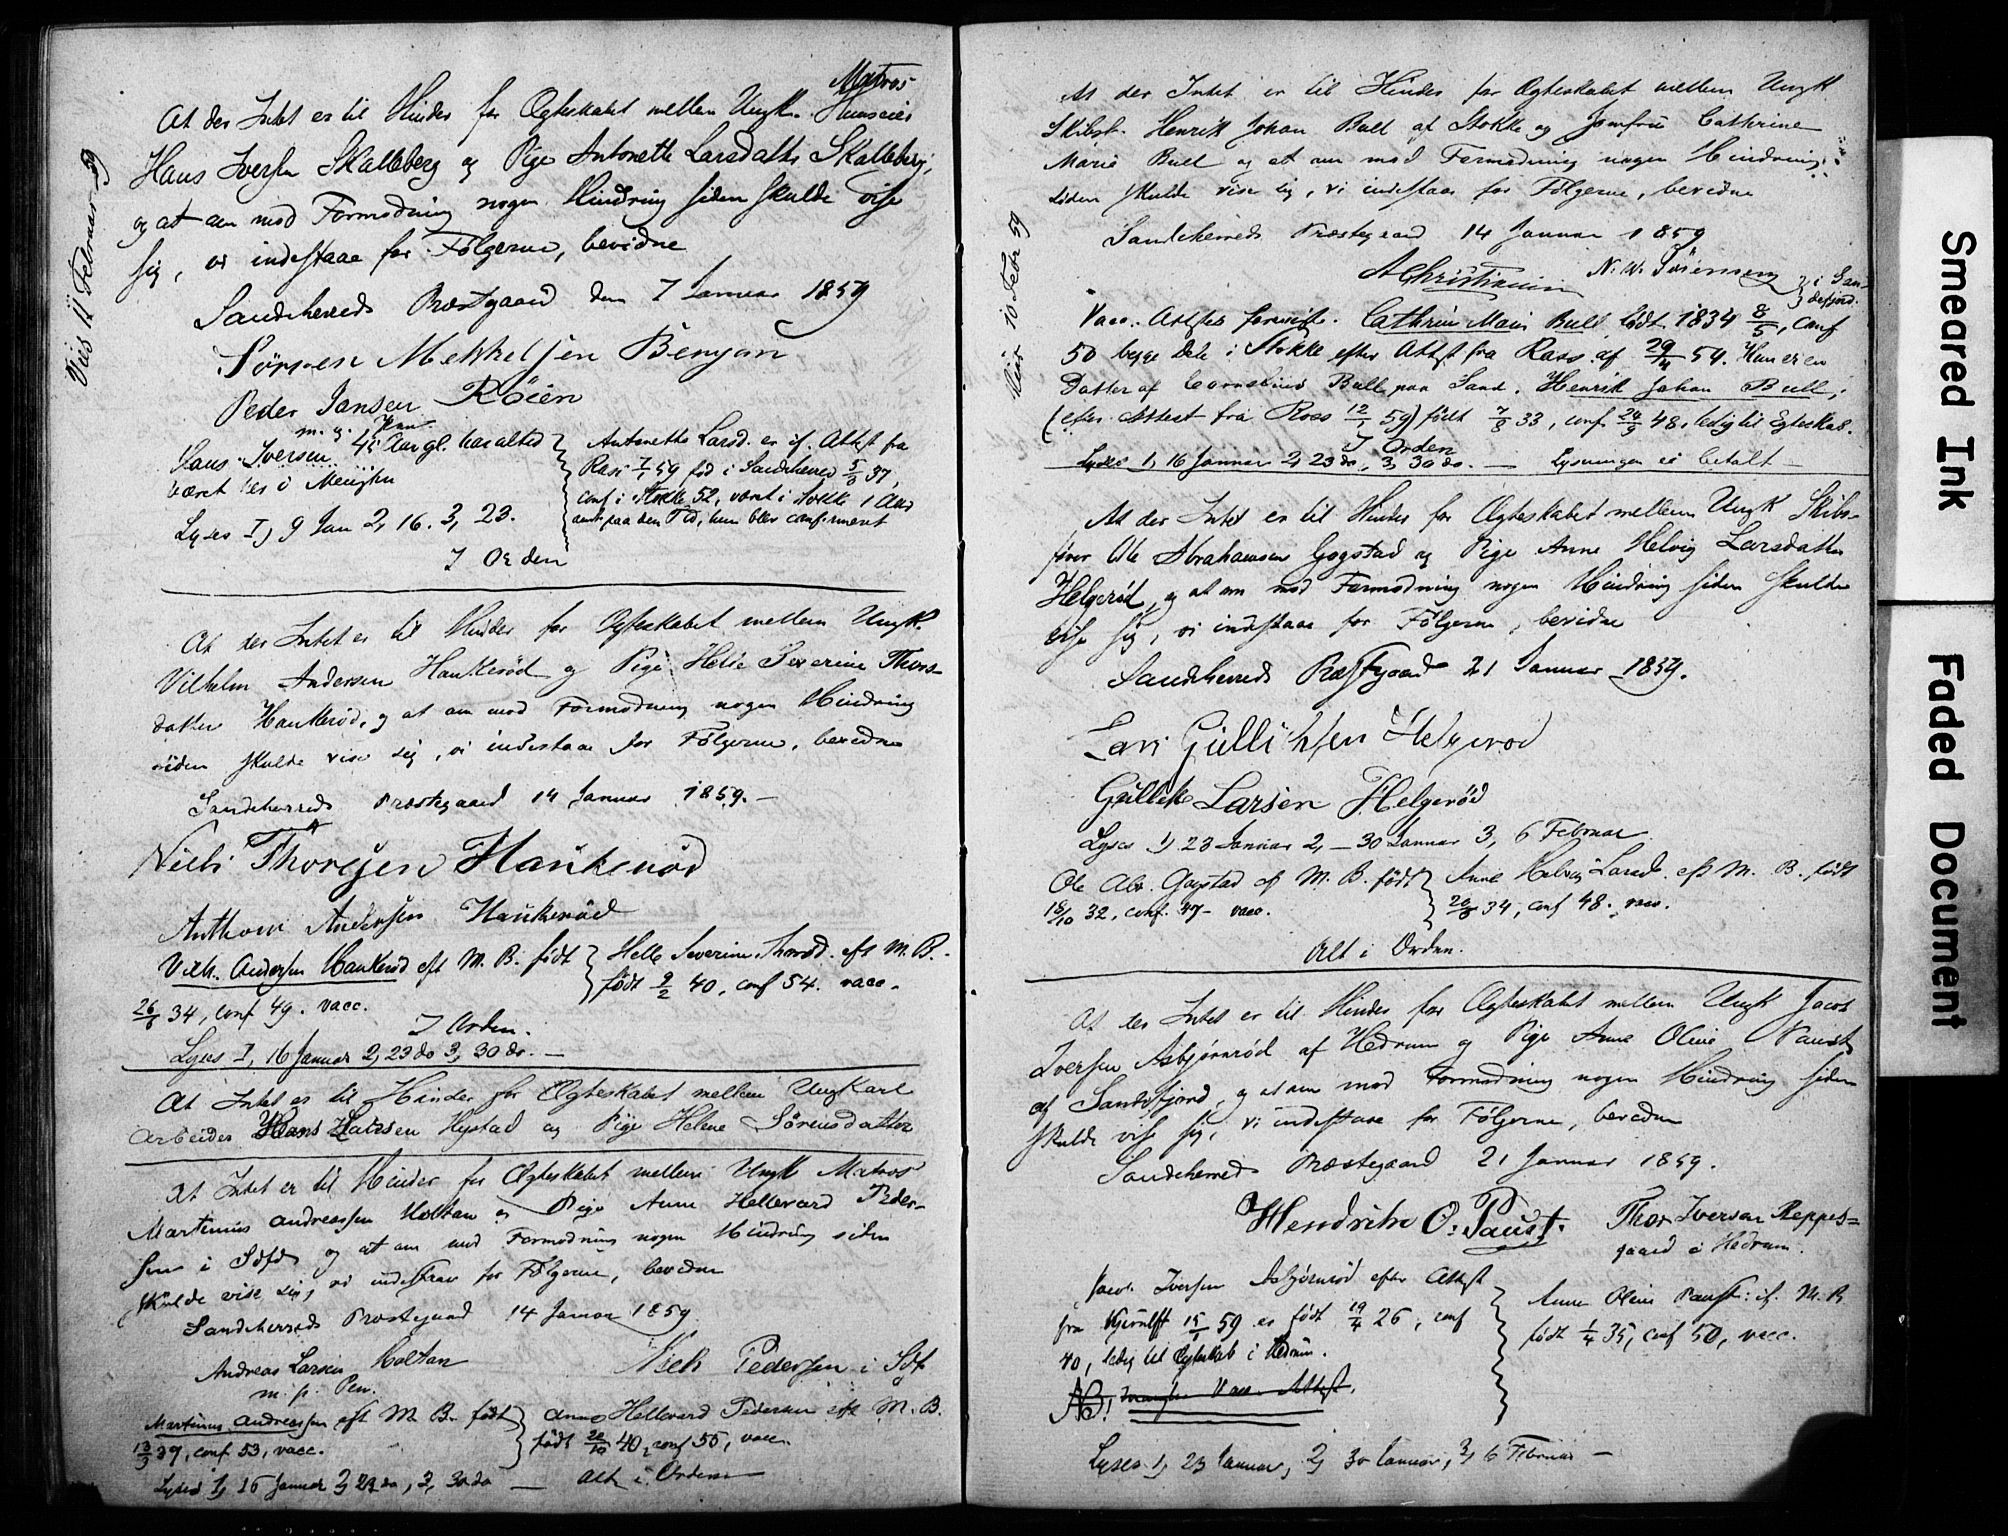 Matros
At der Intet er til Hinder for Ægteskabet mellem Ungk. Huuseier
Hans Iversen Skalleberg og Pige Antonette Larsdatter Skalleberg,
og at om mod Formodning nogen Hindring siden skulde vise
sig, vi indestaae for Følgerne, bevidne
Sandeherreds Præstegaard den 7 Januar 1859
Sørren Mekkelsen Bengam
Peder Jansen Røien
m. g. Pen
Hans Iversen 45 Aar gl. har altid
været her i Menigh
Lyses I, 9 Jan 2, 16. 3, 23.
Antonette Larsd. er if. Attest fra
Rass 7/1 59 fød i Sandeherred 5/3 37,
conf i Stokke 52, været i Stokke 1 Aar
paa den Tid, hun blev confirmeret
I Orden
Viet 11 Februar 59
At der Intet er til Hinder for Ægteskabet mellem Ungk.
Vilhelm Andersen Haukerød og Pige Helle Severine Thors-
datter Haukerød, og at om mod Formodning nogen Hindring
siden skulde vise sig, vi indestaae for Følgerne, bevidne
Sandeherreds Præstegaard 14 Januar 1859.
Niels Thoresen Haukerød
Anthon Andersen Haukerød
Vilh. Andersen Haukerød eft M. B. født
26/8 34, conf 49. vacc.
Helle Severine Thorsd. eft M. B.
født 9/2 40, conf 54. vacc.
I Orden.
Lyses I, 16 Januar 2, 23 do 3, 30 do.
At Intet er til Hinder for Ægteskabet mellem Ungkarl
Arbeider Hans Larssen Hystad og Pige Helene Sørensdatter
At Intet er til Hinder for Ægteskabet mellem Ungk Matros
Martinius Andreassen Holtan og Pige Anne Hellevard Peder-
sen i Sdfd og at om mod Formodning nogen Hindring siden
skulde vise sig, vi indestaae for Følgerne, bevidne
Sandeherreds Præstegaard 14 Januar 1859.
Andreas Larsen Holtan
m. p. Pen.
Niels Pedersen i Sdf
Martinius Andreassen eft M. B. født
13/3 39, conf 53, vacc.
Anne Hellevard Pedersen eft M. B.
født 22/10 40, conf 55, vacc.
Lyses 1, 16 Januar 2, 23 do, 3, 30 do
Alt i Orden
At der Intet er til Hinder for Ægteskabet mellem Ungk
Skibsf. Henrik Johan Bull af Stokke og Jomfru Cathrine
Marie Bull og at om mod Formodning nogen Hindring
siden skulde vise sig, vi indestaae for Følgerne, bevidne
Sandeherreds Præstegaard 14 Januar 1859
AChristiansen N. W. Sørensen i San-
defjord.
Vacc. Attster forevist. Cathrine Marie Bull født 1834 8/5, conf
50 begge Dele i Stokke efter Attest fra Rass af 29/4 54. Hun er en
Datter af Cornelius Bull paa Sand. Henrik Johan Bull,
(efter Attest fra Rass 12/1 59) født 7/8 33, conf 24/9 48, ledig til Egteskab.
I Orden
Lyses 1, 16 Januar 2, 23 do, 3, 30 do. Lysningen er betalt
Viet 10 Febr 59
At der Intet er til Hinder for Ægteskabet mellem Ungk Skibs-
fører Ole Abrahamsen Gogstad og Pige Anne Helvig Larsdatter
Helgerød, og at om mod Formodning nogen Hindring siden skulde
vise sig, vi indestaae for Følgerne, bevidne
Sandeherreds Præstegaard 21 Januar 1859.
Lars Gullikssen Helgerød
Gullik Larsen Helgerød
Lyses 1, 23 Januar 2, 30 Januar 3, 6 Februar
Ole Abr. Gogstad eft M. B. født
18/10 32, conf. 47 vacc.
Anne Helvig Larsd. eft M. B. født
20/8 34, conf 48. vacc.
Alt i Orden.
At der Intet er til Hinder for Ægteskabet mellem Ungk Jacob
Iversen Asbjørnrød af Hedrum og Pige Anne Oline Paust
af Sandefjord, og at om mod Formodning nogen Hindring siden
skulde vise sig, vi indestaae for Følgerne, bevidne
Sandeherreds Præstegaard 21 Januar 1859.
Hendrike O. Paust. Thor Iversen Reppes=
gaard i Hedrum.
Jacob Iversen Asbjørnrød efter Attest
fra Kjerulff 15/1 59 er født 19/4 26, conf
40, ledig til Egteskab i Hedrum.
NB! Vacc Attest.
Anne Oline Paust if. M. B
født 1/4 35, conf 50, vacc.
Lyses 1, 23 Januar, 2, 30 Januar, 3, 6 Februar
Smeared Ink
Faded Document